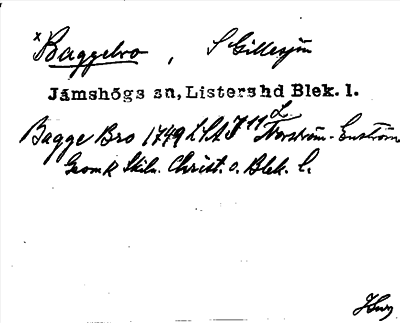 x Baggebro, S Gillesjön
Jämshögs sn, Listers hd Blek. l.
Bagge Bro 1749 LSA J 11 L Norström - Enström
Geom k Skiln. Christ. o. Blek. l.